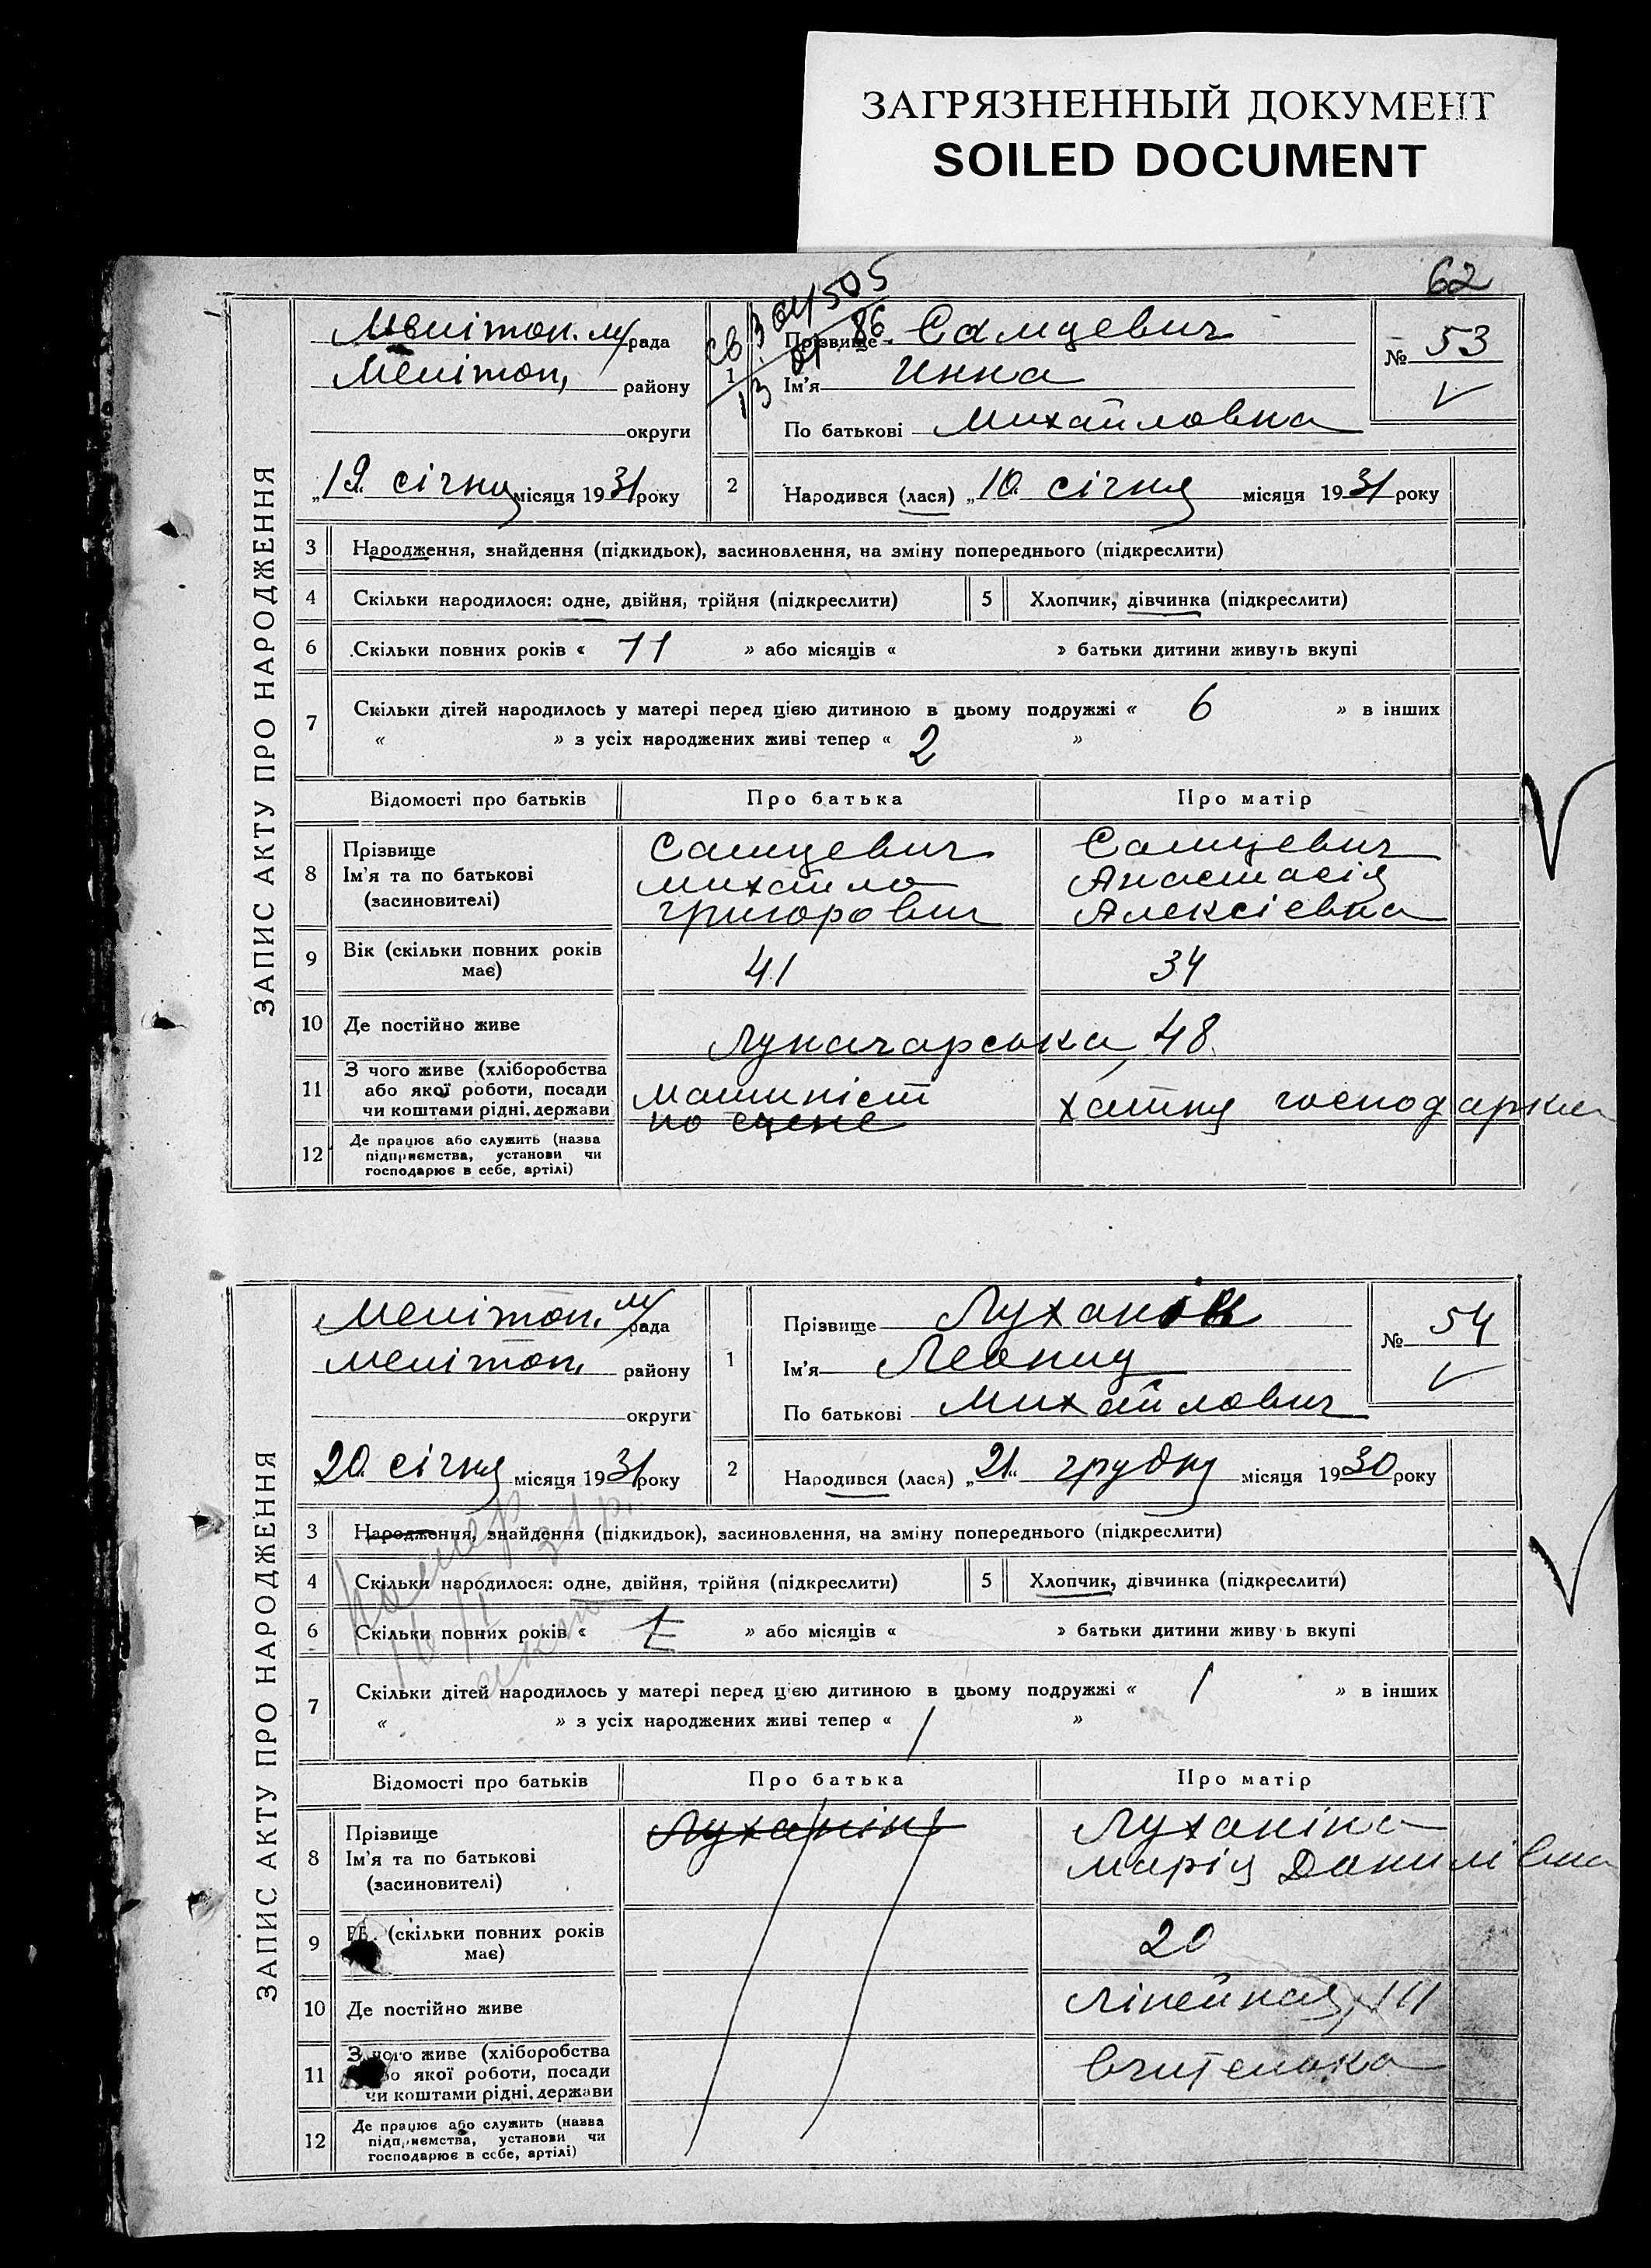 ЗАГРЯЗНЕННЫЙ ДОКУМЕНТ
SOILED DOCUMENT
62
ЗАПИС АКТУ ПРО НАРОДЖЕННЯ
Мелітоп. м/рада
Мелітоп, району
округи
„19“ січня місяця 1931 року
1 Прізвище Самцевич
Ім'я Инна
По батькові Михайловна
№ 53
2 Народився (лася) „10“ січня місяця 1931 року
3 Народження, знайдення (підкидьок), засиновлення, на зміну попереднього (підкреслити)
4 Скільки народилося: одне, двійня, трійня (підкреслити) 5 Хлопчик, дівчинка (підкреслити)
6 Скільки повних років « 11 » або місяців « » батьки дитини живуть вкупі
7 Скільки дітей народилось у матері перед цією дитиною в цьому подружжі « 6 » в інших
« » з усіх народжених живі тепер « 2 »
Відомості про батьків Про батька Про матір
8 Прізвище Самцевич Самцевич
Ім'я та по батькові Михайло Анастасія
(засиновителі) Григорович Алексієвна
9 Вік (скільки повних років має) 41 34
10 Де постійно живе Луначарська, 48.
11 З чого живе (хліборобства
або якої роботи, посади Машиніст хатня господарка
чи коштами рідні, держави по сцене
12 Де працює або служить (назва
підприємства, установи чи
господарює в себе, артілі)
ЗАПИС АКТУ ПРО НАРОДЖЕННЯ
Мелітоп. м/рада
Мелітоп, району
округи
„20“ січня місяця 1931 року
1 Прізвище Луханін
Ім'я Леонид
По батькові Михайлович
№ 54
2 Народився (лася) „21“ грудня місяця 1930 року
3 Народження, знайдення (підкидьок), засиновлення, на зміну попереднього (підкреслити)
Помер 31 р.
4 Скільки народилося: одне, двійня, трійня (підкреслити) 5 Хлопчик, дівчинка (підкреслити)
6 Скільки повних років « 1 » або місяців « » батьки дитини живуть вкупі
7 Скільки дітей народилось у матері перед цією дитиною в цьому подружжі « 1 » в інших
« » з усіх народжених живі тепер « 1 »
Відомості про батьків Про батька Про матір
8 Прізвище Луханін Луханіна
Ім'я та по батькові Марія Данилівна
(засиновителі)
9 (скільки повних років має) 20
10 Де постійно живе Лінейная, 111
11 З чого живе (хліборобства
або якої роботи, посади вчителька
чи коштами рідні, держави
12 Де працює або служить (назва
підприємства, установи чи
господарює в себе, артілі)